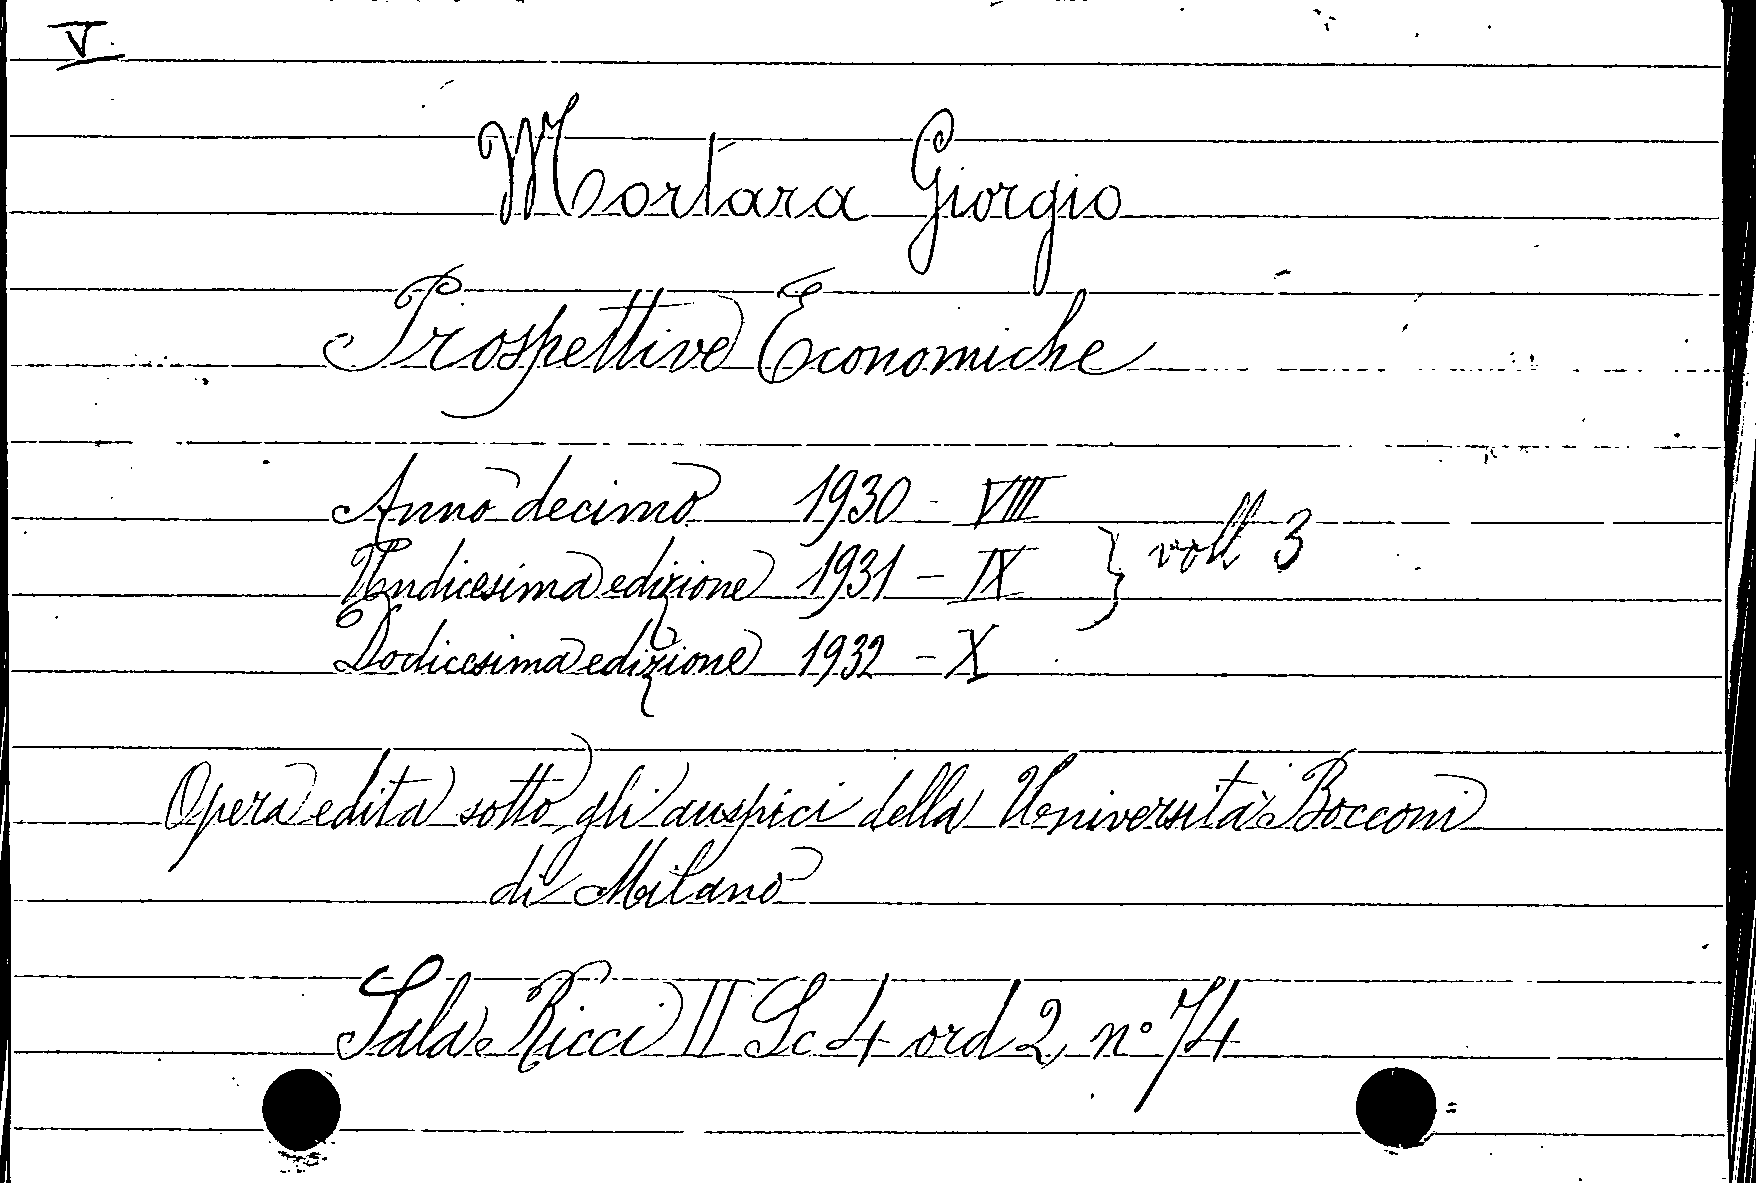 V.
Mortara Giorgio
Prospettive Economiche
Anno decimo 1930 - VIII
Undicesima edizione 1931 - IX } voll 3
Dodicesima edizione 1932 - X
Opera edita sotto gli auspici della Università Bocconi
di Milano
Sala Ricci II Sc 4 ord 2 n° 74